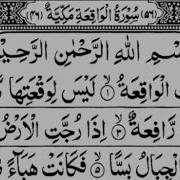 (٥٦) سُورَةُ الْوَاقِعَةِ مَكِّيَّةٌ (٤٦)
سْمِ اللّٰهِ الرَّحْمٰنِ الرَّحِيْمِ
الْوَاقِعَةُ ۝١ لَيْسَ لِوَقْعَتِهَا
رَّافِعَةٌ ۝٣ اِذَا رُجَّتِ الْاَرْضُ
لْجِبَالُ بَسًّا ۝٥ فَكَانَتْ هَبَآءً